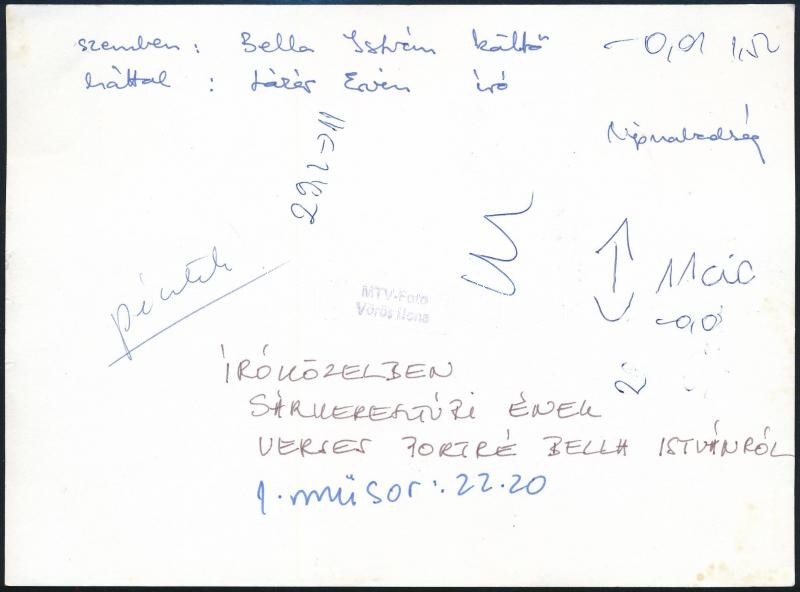 szemben : Bella István költő -0,01 1,52
háttal : Lázár Ervin író
Népszabadság
péntek
11 cic
-0,0
MTV-Foto
Vörös Ilona
ÍRÓKÖZELBEN
SÁRKERESZTÚRI ÉNEK
VERSES PORTRÉ BELLA ISTVÁNRÓL
1. műsor: 22.20